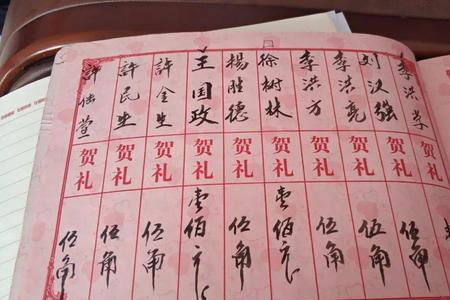 李洪学 贺礼 伍角
刘汉强 贺礼 伍角
李洪亮 贺礼 伍角
李洪方 贺礼 壹佰元
徐树林 贺礼 伍角
杨胜德 贺礼 伍角
王国政 贺礼 壹佰元
許金生 贺礼 伍角
許民生 贺礼 伍角
許萱 贺礼 伍角